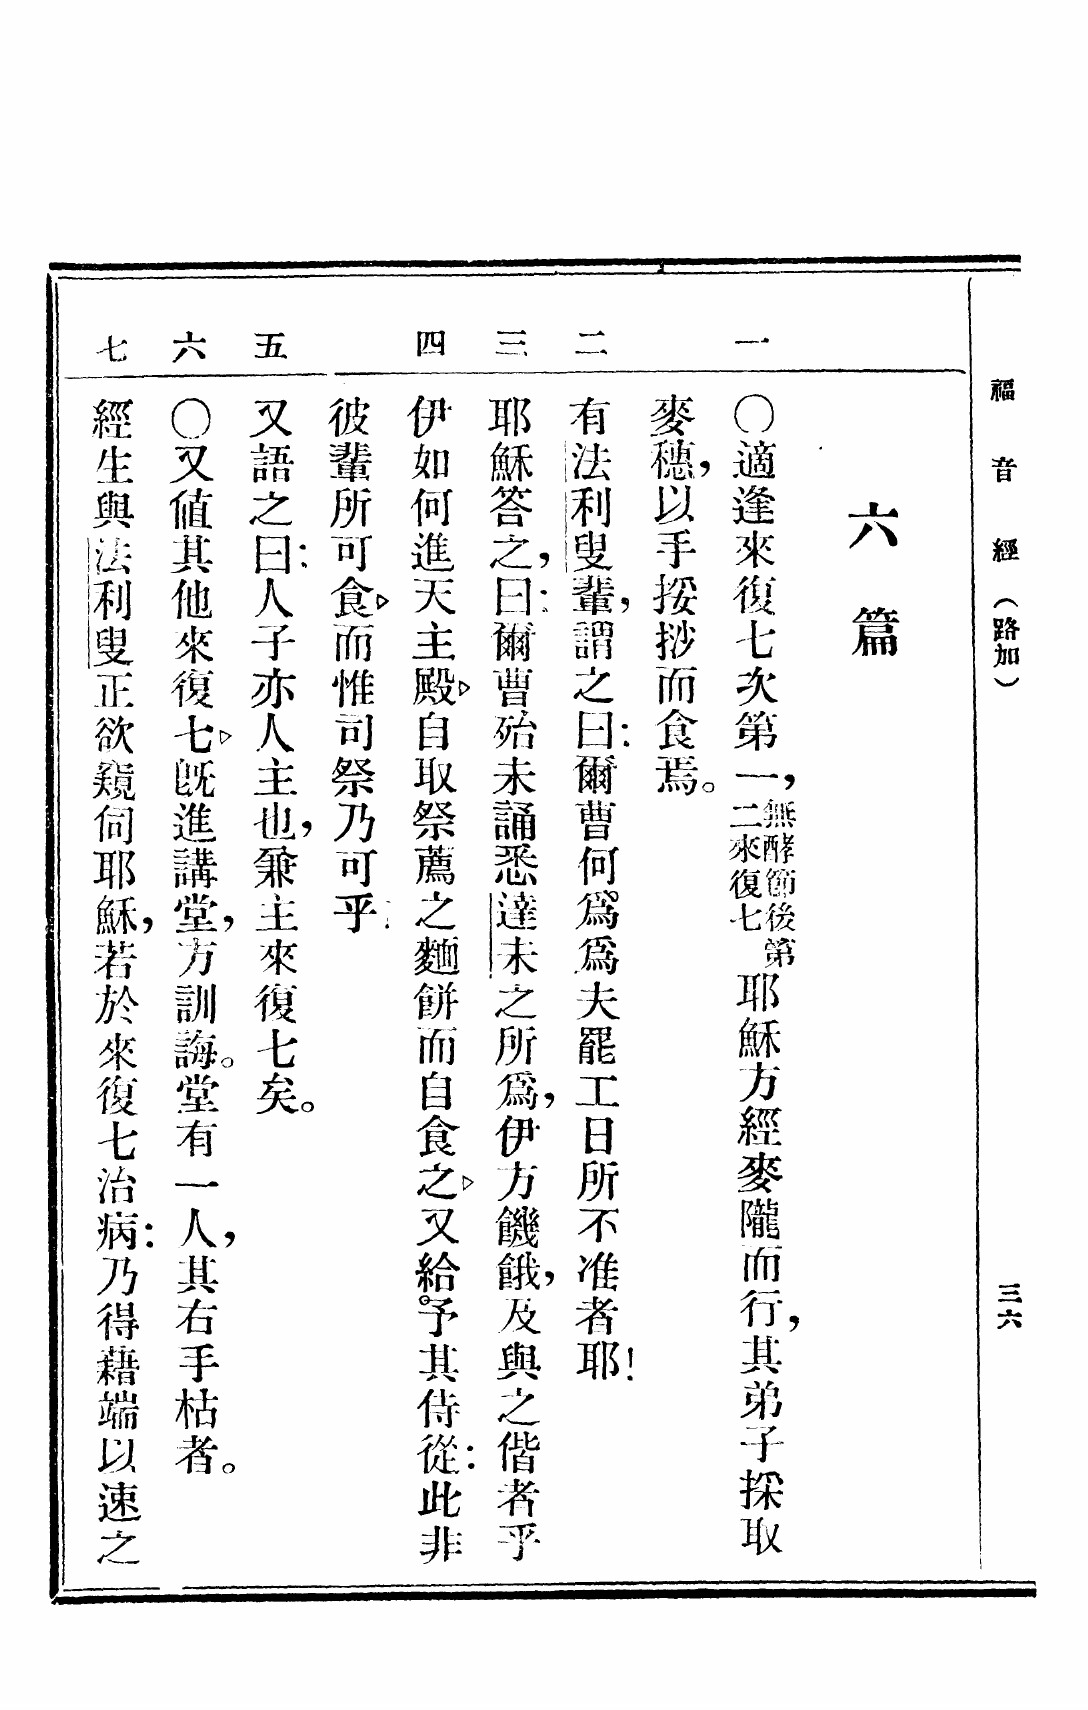 福音經（路加）
三六
六篇
一
○適逢來復七次第一，無酵節後第二來復七耶穌方經麥隴而行，其弟子採取
麥穗，以手挼挱而食焉。
二
有法利叟輩，謂之曰：爾曹何爲爲夫罷工日所不准者耶！
三
耶穌答之，曰：爾曹殆未誦悉達未之所爲，伊方饑餓，及與之偕者乎
四
伊如何進天主殿▷自取祭薦之麵餅而自食之▷又給予其侍從：此非
彼輩所可食▷而惟司祭乃可乎：
五
又語之曰：人子亦人主也，兼主來復七矣。
六
○又値其他來復七▷旣進講堂，方訓誨。堂有一人，其右手枯者。
七
經生與法利叟正欲窺伺耶穌，若於來復七治病：乃得藉端以速之